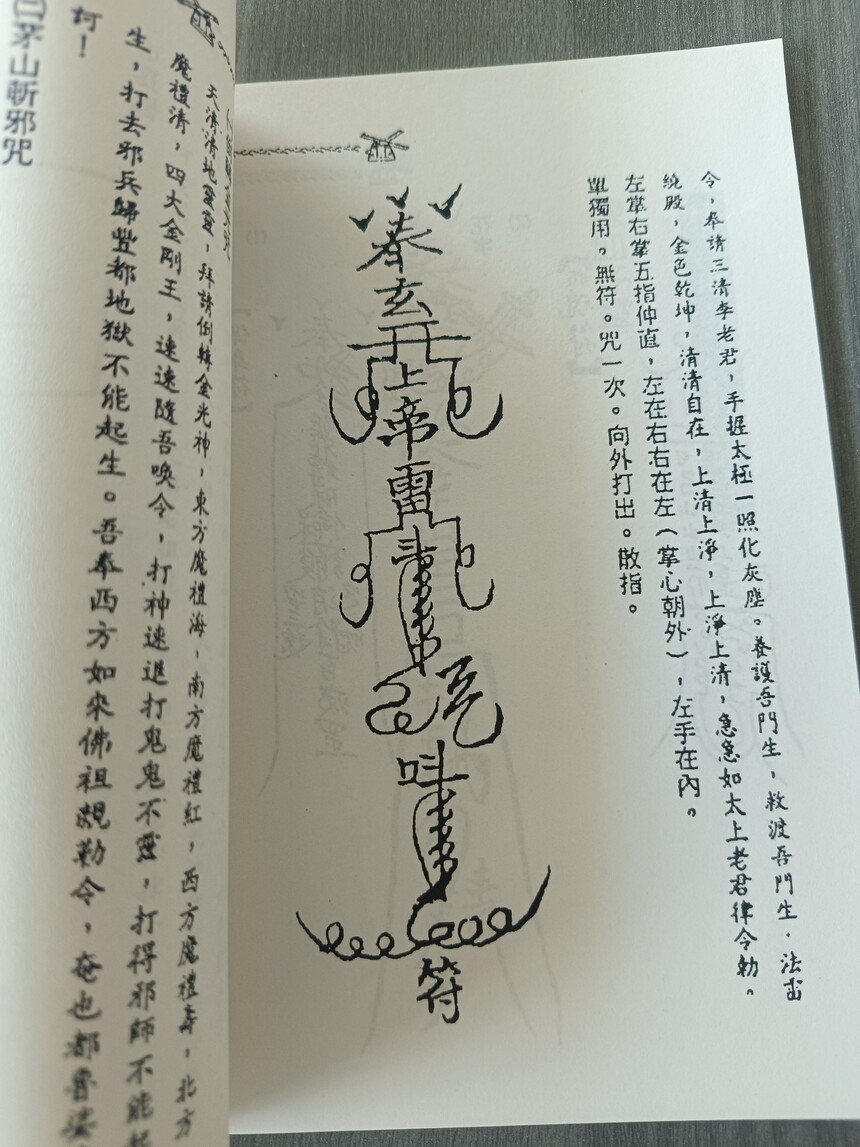 令，奉請三清李老君，手握太極一照化灰塵。養護吾門生，救渡吾門生，法
繞殿，金色乾坤，清清自在，上清上淨，上淨上清，急急如太上老君律令勅。
左掌右掌五指伸直，左在右右在左（掌心朝外），左手在內。
單獨用。無符。咒一次。向外打出。散指。
奉玄
上帝雷
符
天清清地靈靈，拜請倒轉金光神，東方魔禮海，南方魔禮紅，西方魔禮壽，北方
魔禮清，四大金剛王，速速隨吾喚令，打神速退打鬼鬼不靈，打得邪師不能起
生，打去邪兵歸豐都地獄不能起生。吾奉西方如來佛祖親勒令，奄也都魯
訶！
㈡茅山斬邪咒